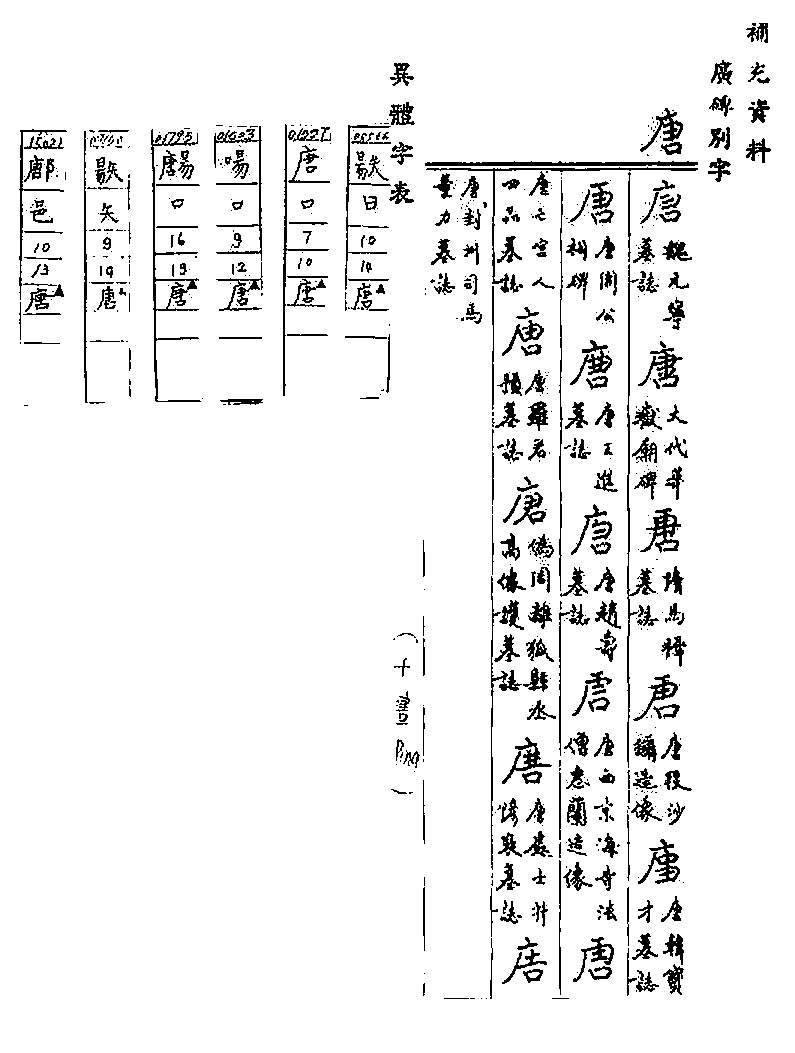 補充資料
廣碑別字
唐
唐
魏元寧
墓誌
唐
大代華
嶽廟碑
唐
隋馬穉
墓誌
唐
唐段沙
彌造像
唐
唐韓寶
才墓誌
唐
唐周公
祠碑
唐
唐王進
墓誌
唐
唐趙壽
墓誌
唐
唐西京海寺法
僧惠蘭造像
唐
唐亡宮人
四品墓誌
唐
唐羅君
墓誌
唐
偽周離狐縣丞
高像護墓誌
唐
唐處士
墓誌
唐
唐封州司馬
董力墓誌
異體字表
日
10
14
唐▲
01227
唐
口
7
10
唐▲
口
9
12
唐▲
01795
口
16
19
唐▲
矢
9
14
唐▲
15021
鄌
邑
10
13
唐▲
(十畫Ping)